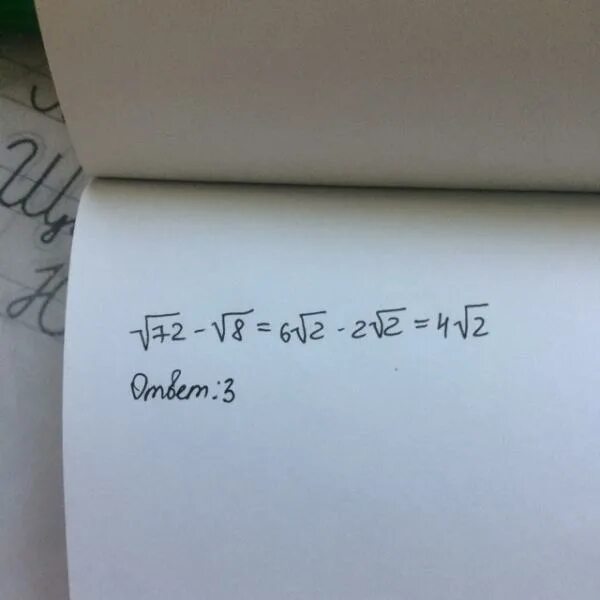 √72 - √8 = 6√2 - 2√2 = 4√2
Ответ: 3